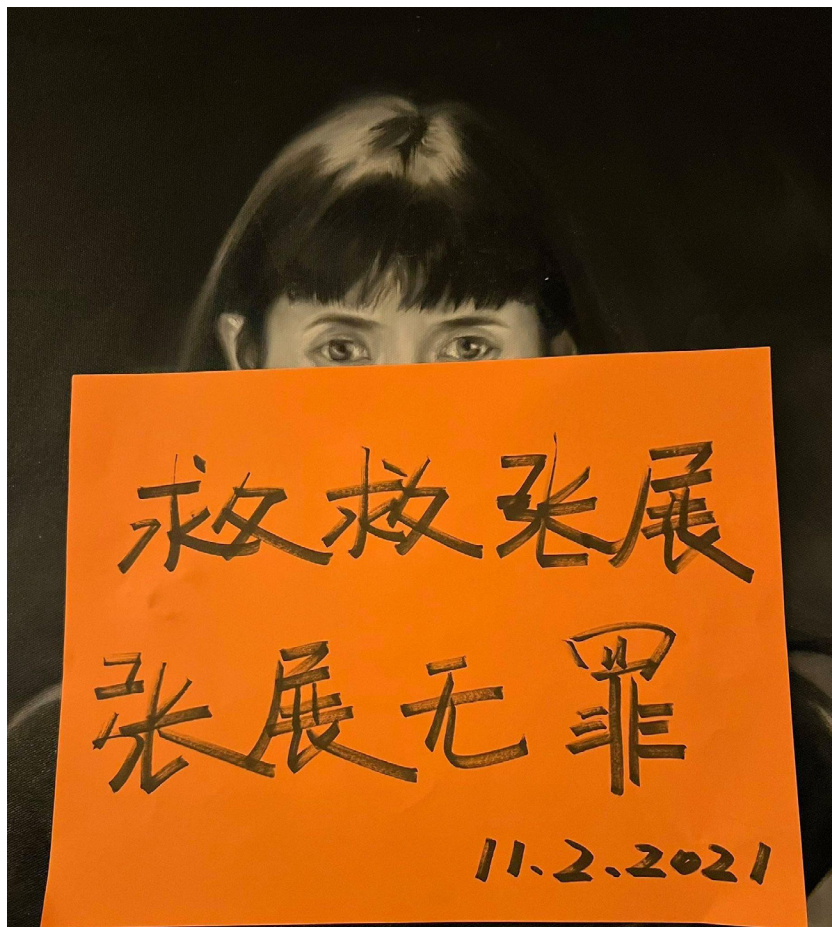 救救张展
张展无罪
11.2.2021